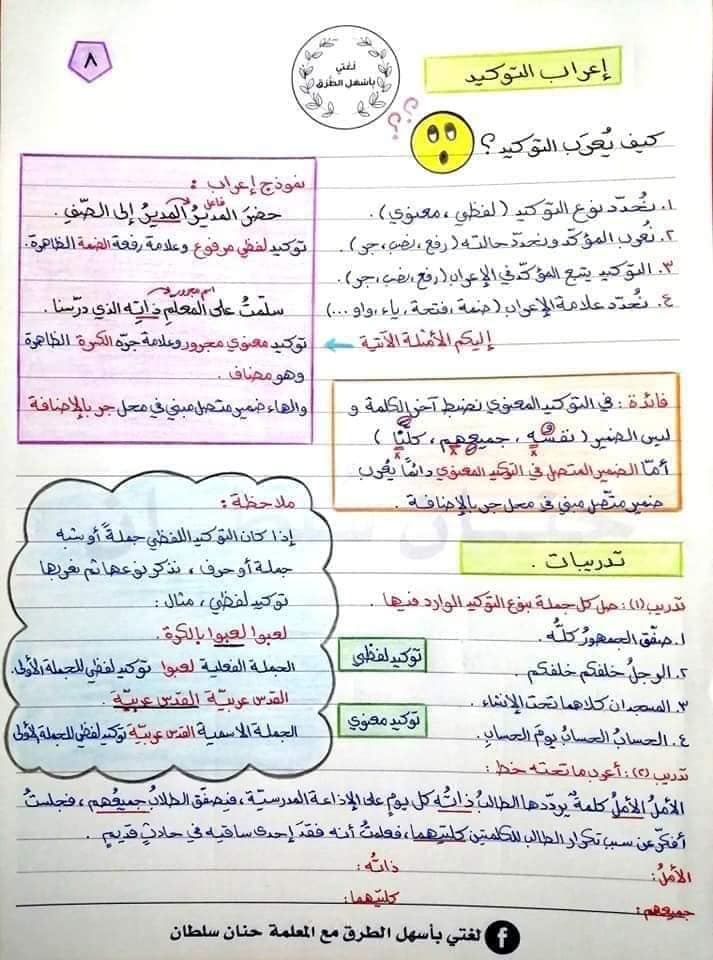 ٨
لغتي
بأسهل الطرق
إعراب التوكيد
كيف يُعرَب التوكيد؟
١. نُحدّد نوع التوكيد (لفظي، معنوي).
٢. نُعرب المؤكّد ونحدد حالته (رفع، نصب، جر).
٣. التوكيد يتبع المؤكّد في الإعراب (رفع، نصب، جر).
٤. نُحدّد علامة الإعراب (ضمة، فتحة، ياء، واو ...)
إليكم الأمثلة الآتية
نموذج إعراب :
فاعل
حضرَ المديرُ المديرُ إلى الصّفِ.
توكيد لفظي مرفوع وعلامة رفعة الضمة الظاهرة.
اسم مجرور
سلّمتُ على المعلمِ ذاتِه الذي درّسنا.
توكيد معنوي مجرور وعلامة جرّه الكسرة الظاهرة
وهو مضاف.
والهاء ضمير متصل مبني في محل جر بالإضافة
فائدة : في التوكيد المعنوي نضبط آخر الكلمة و
ليس الضمير ( نفسُه ، جميعهم ، كلنا )
أمّا الضمير المتصل في التوكيد المعنوي دائمًا يُعرب
ضمير متّصل مبني في محل جر بالإضافة .
ملاحظة :
إذا كان التوكيد اللفظي جملةً أو شبه
جملة أو حرف ، نذكر نوعها ثم نعربها
توكيد لفظي ، مثال :
لعبوا لعبوا بالكرة.
الجملة الفعلية لعبوا توكيد لفظي للجملة الأولى.
القدس عربيّة القدس عربيّة .
الجملة الاسمية القدس عربيّة توكيد لفظي للجملة الأولى
حنان سلطان
تدريبات .
تدريب (١) : صل كل جملة بنوع التوكيد الوارد فيها .
١. صفّق الجمهورُ كلُّه .
٢. الرجلُ خلفكم خلفكم .
٣. المسجدان كلاهما تحت الإنشاء .
٤. الحسابُ الحسابُ يومَ الحسابِ.
توكيد لفظي
توكيد معنوي
تدريب (٢) : أعرب ما تحته خط :
الأملُ الأملُ كلمةٌ يردّدها الطالبُ ذاتُه كل يومٍ على الإذاعة المدرسيّة ، فيصفّق الطلابُ جميعُهم ، فجلستُ
أفكّر عن سبب تكرار الطالب للكلمتين كلتيهما ، فعلمتُ أنه فقدَ إحدى ساقيه في حادثٍ قديم .
الأملُ:
ذاتُه :
جميعهم :
كلتيهما:
لغتي بأسهل الطرق مع المعلمة حنان سلطان